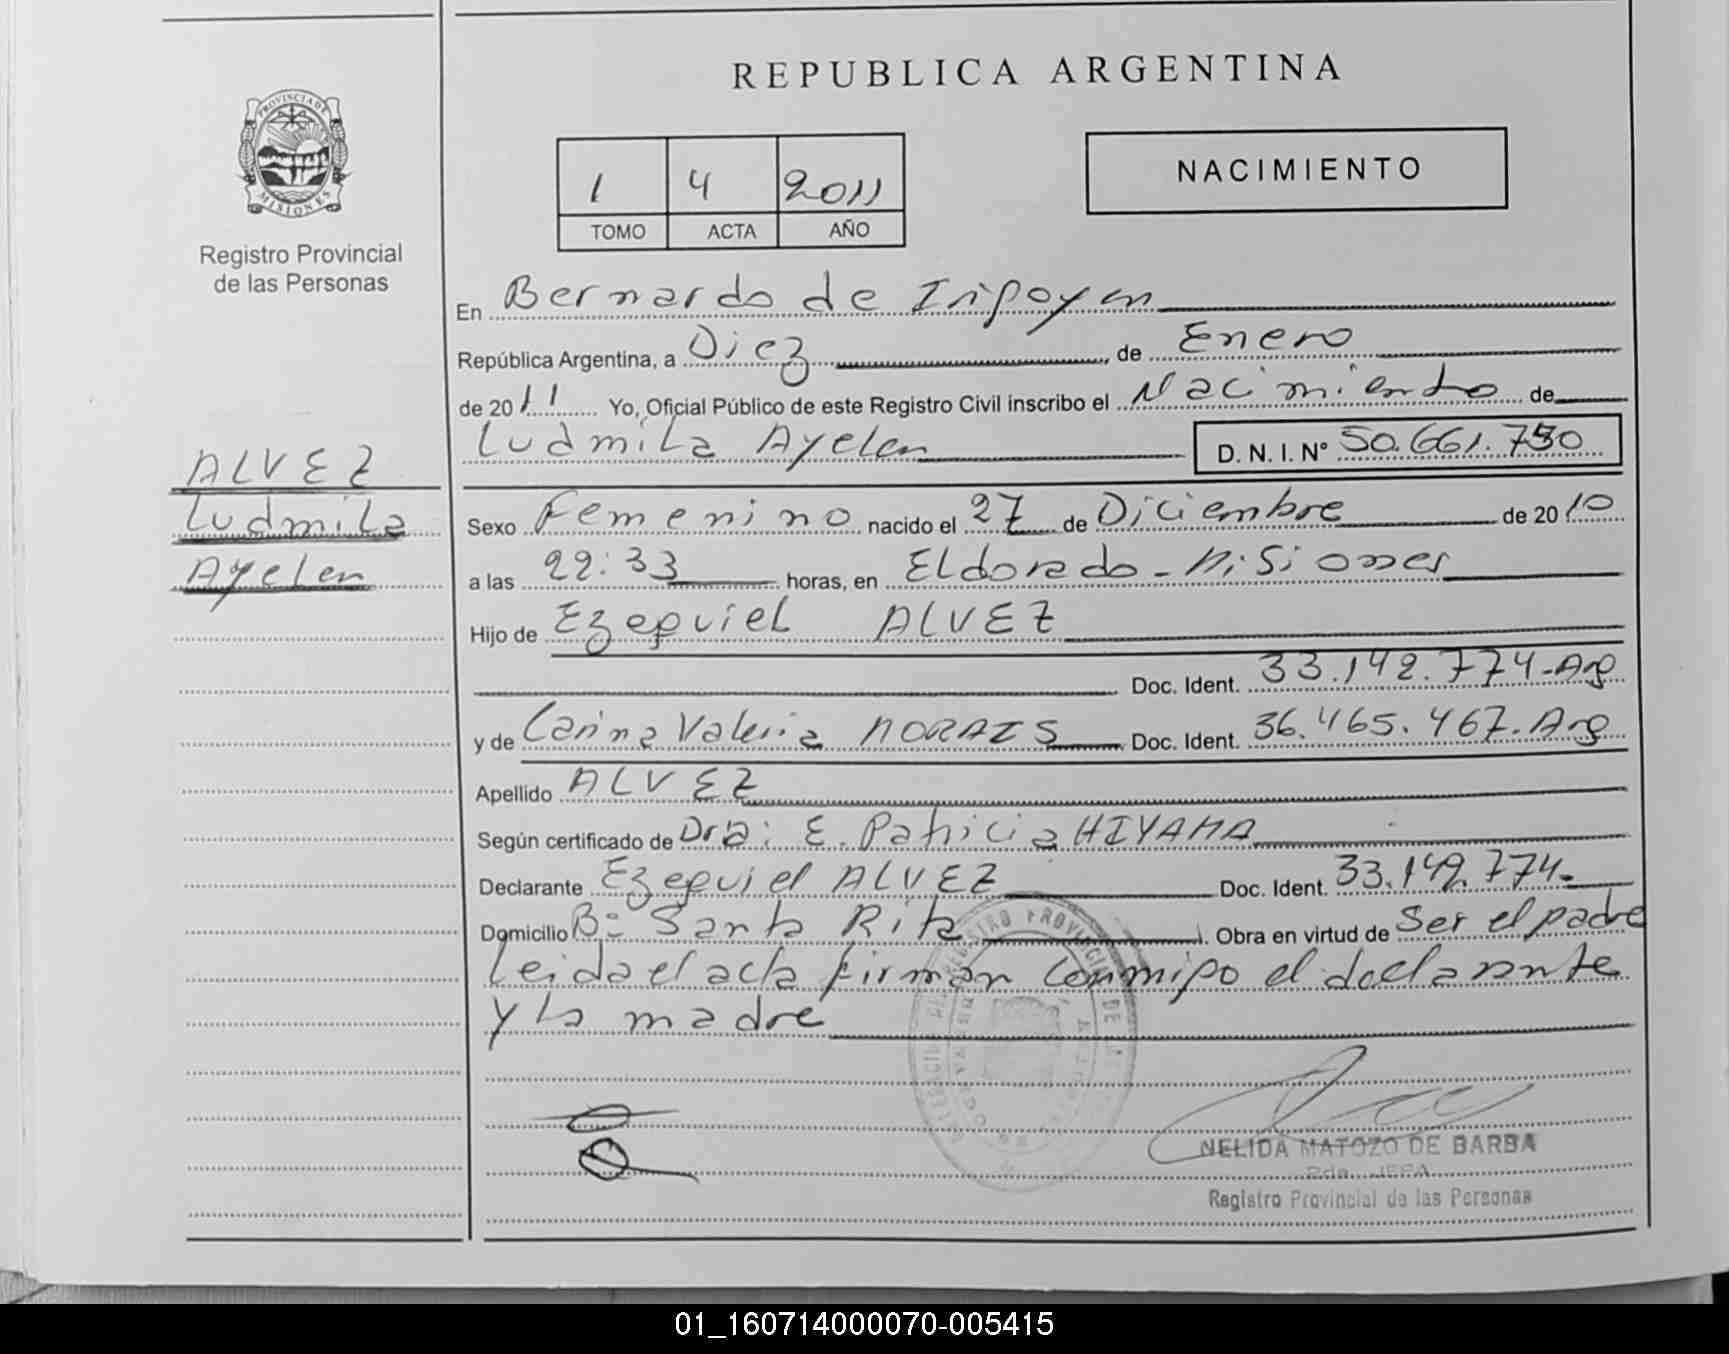 REPUBLICA ARGENTINA
PROVINCIA DE
MISIONES
Registro Provincial
de las Personas
1 4 2011
TOMO ACTA AÑO
NACIMIENTO
En Bernardo de Irigoyen
República Argentina, a Diez, de Enero
de 2011 Yo, Oficial Público de este Registro Civil inscribo el Nacimiento de
Ludmila Ayelen D. N. I. Nº 50.661.750
ALVEZ
Ludmila
Ayelen
Sexo Femenino nacido el 27 de Diciembre de 2010
a las 22:33 horas, en Eldorado - Misiones
Hijo de Ezequiel ALVEZ
Doc. Ident. 33.142.774-Arg
y de Carina Valeria MORAIS Doc. Ident. 36.465.467.Arg
Apellido ALVEZ
Según certificado de Dra: E. Patricia HIYAMA
Declarante Ezequiel ALVEZ Doc. Ident. 33.142.774-
Domicilio Bº Santa Rita. Obra en virtud de Ser el padre
Leida el acta firman conmigo el declarante
y la madre
NELIDA MATOZO DE BARBA
2da. JEFA
Registro Provincial de las Personas
01_160714000070-005415